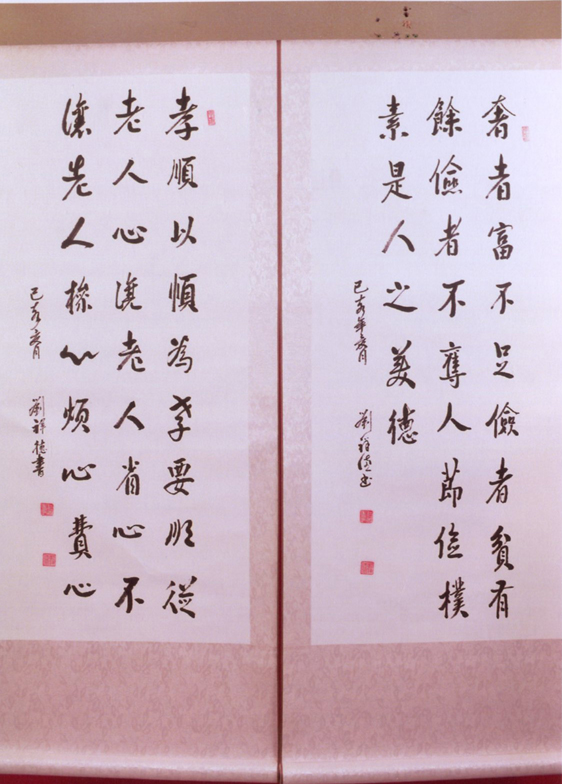 奢者富不足儉者貧有
餘儉者不奪人節儉樸
素是人之美德
己亥年
劉祥德书
孝順以順為孝要順從
老人心讓老人省心不
讓老人操心煩心費心
己亥
劉祥德書